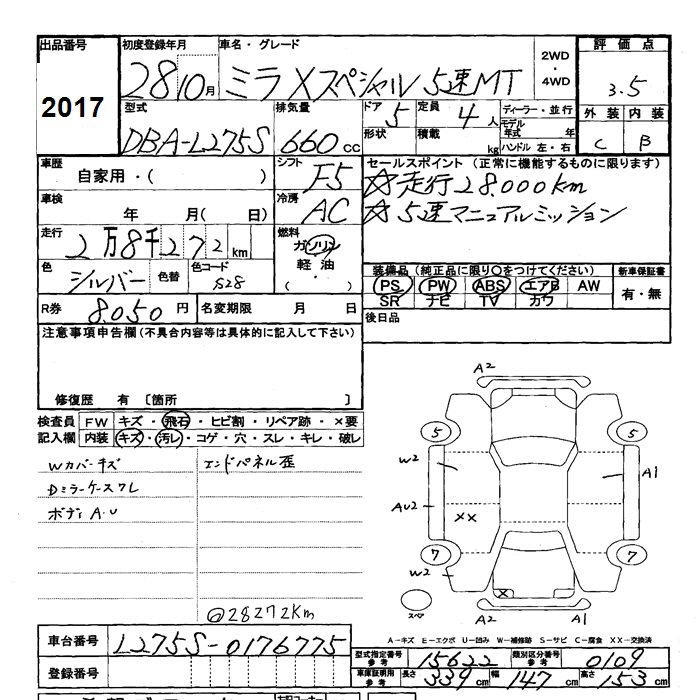 出品番号 初度登録年月 車名・グレード 2WD・4WD 評価点
2017 28 10月 ミラ Xスペシャル 5速MT 3.5
型式 排気量 ドア 5 定員 4人 ディーラー・並行 外装 内装
DBA-L275S 660cc 形状 積載 kg モデル年式 年 C B
ハンドル 左・右
車歴 シフト セールスポイント (正常に機能するものに限ります)
自家用・( ) F5 ☆走行28.000km
車検 冷房 ☆5速マニュアルミッション
年 月( 日) AC
走行 燃料
2万8千272km ガソリン
色 色替 色コード 軽油 装備品 (純正品に限り〇をつけてください) 新車保証書
シルバー S28 (・) PS PW ABS エアB AW 有・無
SR ナビ TV カワ
R券 8.050円 名変期限 月 日 後日品
注意事項申告欄(不具合内容等は具体的に記入して下さい)
修復歴 有 〔箇所 〕
検査員 FW キズ・飛石・ヒビ割・リペア跡・×要
記入欄 内装 キズ・汚レ・コゲ・穴・スレ・キレ・破レ
Wカバーキズ エンドパネル歪
Dミラーケースワレ
ボディ A.U
@28272Km
A2
5 5
W2 A1
AU2 XX
7 7
W2 X
スペア A2 A1
A-キズ E-エクボ U-凹み W-補修跡 S-サビ C-腐食 XX-交換済
車台番号 L275S-0176775
型式指定番号 参考 15622 類別区分番号 参考 0109
登録番号 車庫証明用 参考 長さ 339cm 幅 147cm 高さ 153cm